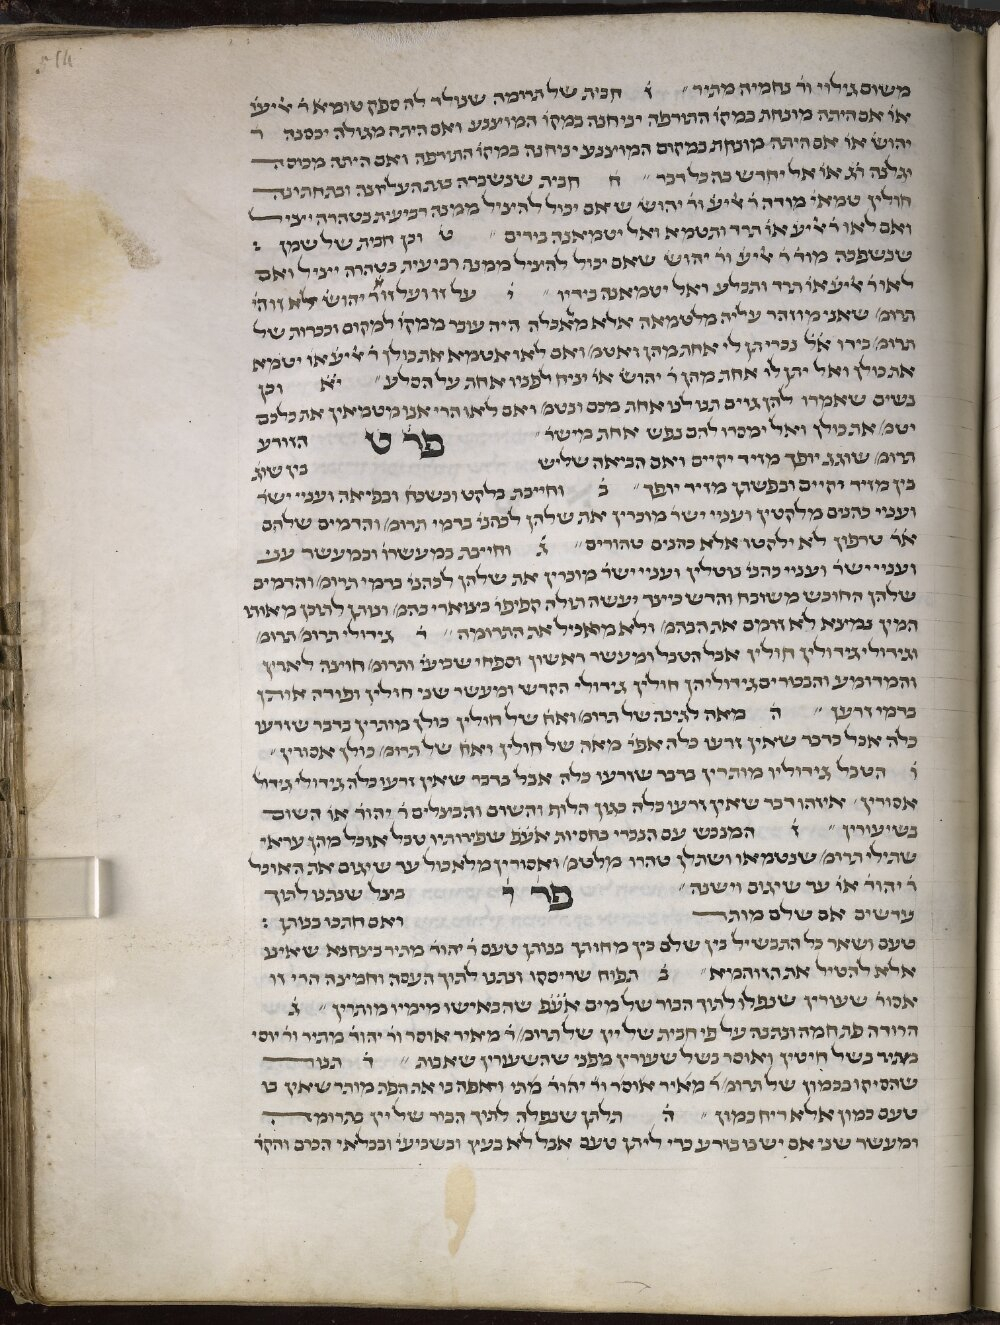 משום גילוי ור׳ נחמיה מתיר״ ז׳ חבית של תרומה שנולד לה ספק טומא׳ ר׳ אליעז׳
או׳ אם היתה מונחת במקו׳ התורפה יניחנה במקו׳ המוצנע ואם היתה מגולה יכסנה ר׳
יהוש׳ או׳ אם היתה מונחת במקום המוצנע יניחנה במקו׳ התורפה ואם היתה מכוסה
יגלנה ר״ג או׳ אל יחדש בה כל דבר״ ח׳ חבית שנשברה בגת העליונה ובתחתונה
חולין טמאי׳ מודה ר׳ אליע׳ ור׳ יהוש׳ שאם יכול להציל ממנה רביעית בטהרה יציל
ואם לאו ר׳ אליע׳ או׳ תרד ותטמא ואל יטמאנה בידים״ ט׳ וכן חבית של שמן :
שנשפכה מודר׳ אליע׳ ור׳ יהוש׳ שאם יכול להציל ממנה רביעית בטהרה יציל ואם
לאו ר׳ אליע׳ או׳ תרד ותבלע ואל יטמאנה בידיו״ י׳ על זו ועל זו א״ר יהוש׳ לא זו היא
תרומ׳ שאני מוזהר עליה מלטמאה אלא מאכלה היה עובר ממקו׳ למקום וככרות של
תרומ׳ בידו א״ל נכרי תן לי אחת מהן ואטמ׳ ואם לאו אטמא את כולן ר׳ אליע׳ או׳ יטמא
את כולן ואל יתן לו אחת מהן ר׳ יהוש׳ או׳ יניח לפניו אחת על הסלע״ י״א וכן
נשים שאמרו להן גוים תנו לנו אחת מכם ונטמ׳ ואם לאו הרי אנו מטמאין את כלכם
יטמ׳ את כולן ואל ימסרו להם נפש אחת מישר׳״ פר׳ ט׳ הזורע
תרומ׳ שוגג יופך מזיד יקיים ואם הביאה שליש בין שוג׳
בין מזיד יקיים ובפשתן מזיד יופך״ ב׳ וחייבת בלקט ובשכח׳ ובפיאה ועניי ישר׳
ועניי כהנים מלקטין ועניי ישר׳ מוכרין את שלהן לכהני׳ בדמי תרומ׳ והדמים שלהם
א״ר טרפון לא ילקטו אלא כהנים טהורים״ ג׳ וחייבת במעשרו׳ ובמעשר עני
ועניי ישר׳ ועניי כהני׳ נוטלין ועניי ישר׳ מוכרין את שלהן לכהני׳ בדמי תרומ׳ והדמים
שלהן החובט משובח והדש כיצד יעשה תולה קפיפו׳ בצוארי בהמ׳ ונותן לתוכן מאותו
המין נמצא לא זומם את הבהמ׳ ולא מאכיל את התרומה״ ד׳ גידולי תרומ׳ תרומ׳
וגידולי גידולין חולין אבל הטבל ומעשר ראשון וספחי שביעי׳ ותרומ׳ חוצה לארץ
והמדומע והבכורים גידוליהן חולין גידולי הקדש ומעשר שני חולין ופודה אותן
בדמי זרען״ ה׳ מאה לגינה של תרומ׳ ואח׳ של חולין כולן מותרין בדבר שזרעו
כלה אבל בדבר שאין זרעו כלה אפי׳ מאה של חולין ואח׳ של תרומ׳ כולן אסורין״
ו׳ הטבל גידוליו מותרין בדבר שזרעו כלה אבל בדבר שאין זרעו כלה גידולי גידול׳
אסורין׳ איזהו דבר שאין זרעו כלה כגון הלוף והשום והבצלים ר׳ יהוד׳ או׳ השום
כשיעורין״ ז׳ המנכש עם הנכרי בחסיות אע״פ שפירותיו טבל אוכל מהן עראי
שתילי תרומ׳ שנטמאו ושתלן טהרו מלטמ׳ ואסורין מלאכול עד שיגום את האוכל
ר׳ יהוד׳ או׳ עד שיגום וישנה״ פר׳ י׳ בצל שנתנו לתוך
עדשים אם שלם מותר ואם חתכו בנותן :
טעם ושאר כל התבשיל בין שלם בין מחותך בנותן טעם ר׳ יהוד׳ מתיר בצחנא שאינו
אלא להטיל את הזוהמא״ ב׳ תפוח שריסקו ונתנו לתוך העסה וחמיצה הרי זו
אסור׳ שעורין שנפלו לתוך הבור של מים אע״פ שהבאישו מימיו מותרין״ ג׳
הרודה פת חמה ונתנה על פי חבית של יין של תרומ׳ ר׳ מאיר אוסר ור׳ יהוד׳ מתיר ור׳ יוסי
מתיר בשל חיטין ואוסר בשל שעורין מפני שהשעורין שאבות״ ד׳ תנור
שהסיקו בכמון של תרומ׳ ר׳ מאיר אוסר ור׳ יהוד׳ מתי׳ ואפה בו את הפת מותר שאין בו
טעם כמון אלא ריח כמון״ ה׳ תלתן שנפלה לתוך הבור של יין בתרומה
ומעשר שני אם יש בו בזרע כדי ליתן טעם אבל לא בעץ ובשביעי׳ ובכלאי הכרם והקד׳